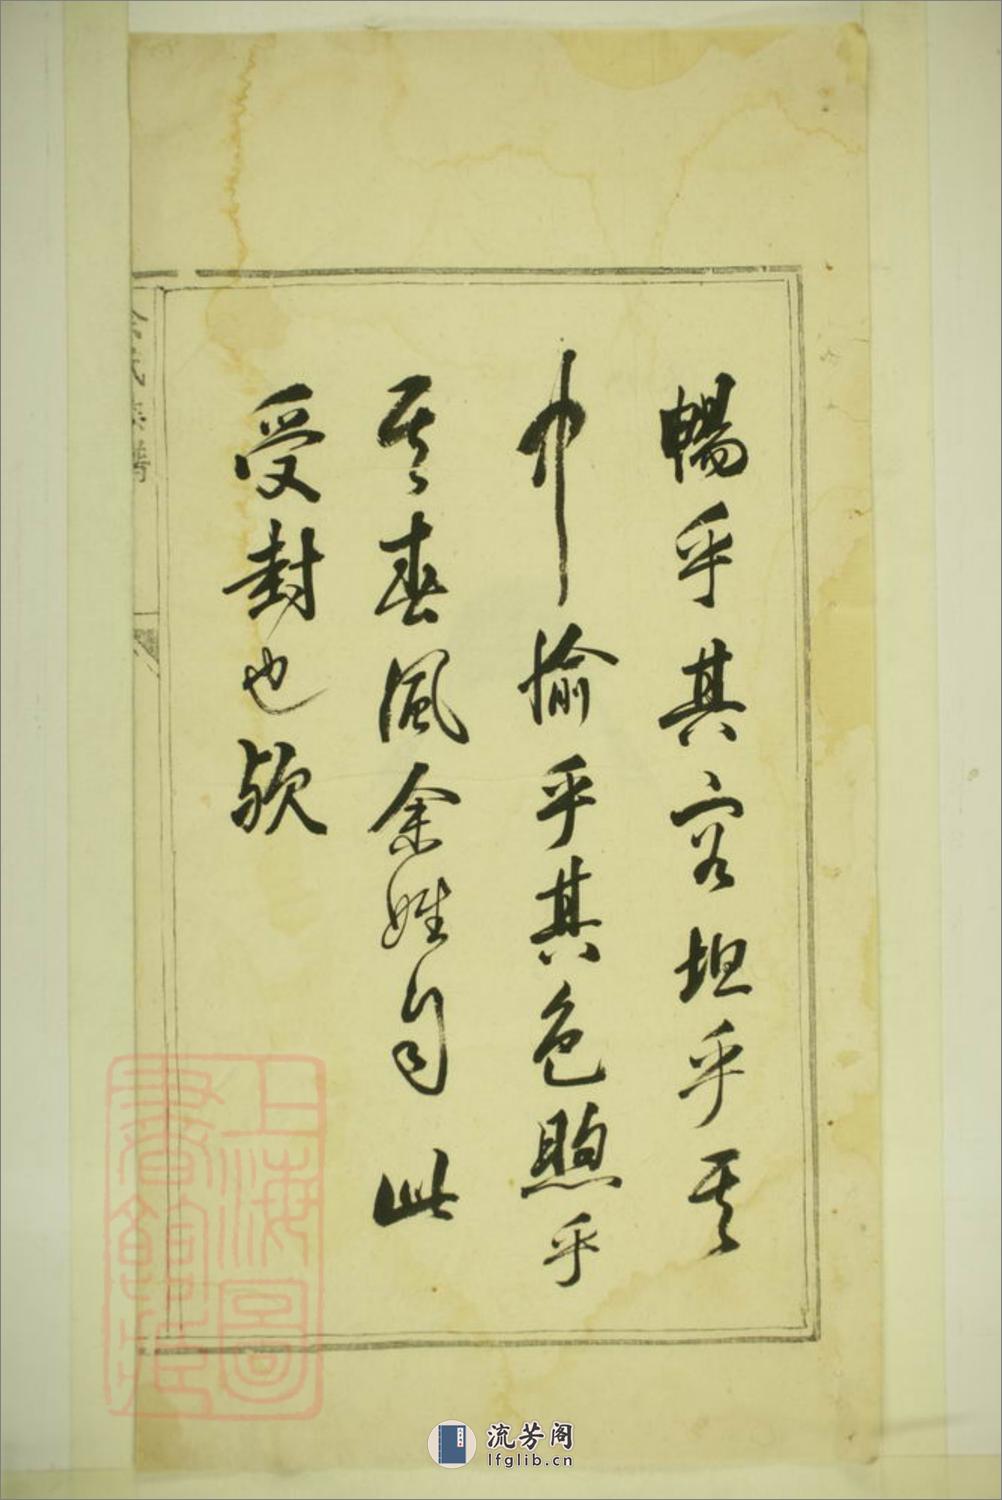 暢乎其容坦乎其
中愉乎其色煦乎
其春風余姓自此
受封也歟
余氏族譜
上海圖
書館藏
流芳阁
lfglib.cn